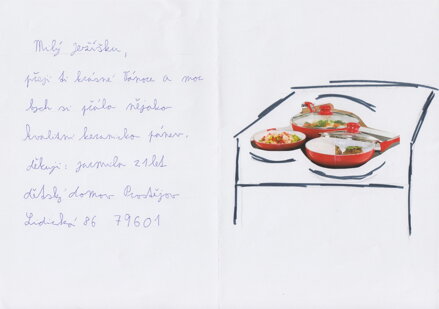 Milý Ježíšku,
přeji ti krásné Vánoce a moc
bych si přála nějako
kvalitní keramicko pánev.
děkuji: jarmila 21 let
dětský domov Prostějov
Lidická 86 79601